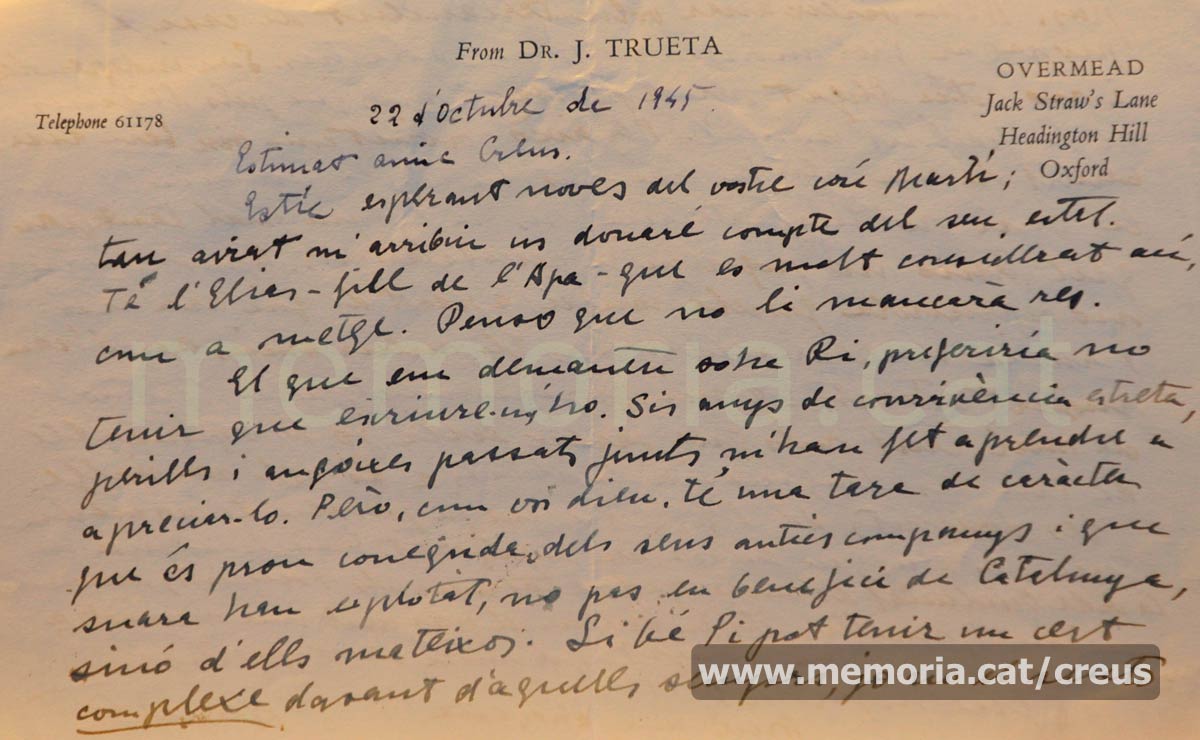 From DR. J. TRUETA
OVERMEAD
Jack Straw's Lane
Headington Hill
Oxford
Telephone 61178
22 d'Octubre de 1945.
Estimat amic Creus.
Estic esperant noves del vostre cosí Martí;
tan aviat m'arribin us donaré compte del seu estat.
Té l'Elias - fill de l'Apa - que es molt considerat ací,
com a metge. Penso que no li mancarà res.
El que em demaneu sobre Pi, preferiria no
tenir que escriure-us-ho. Sis anys de convivència estreta,
perills i angóixes passats junts m'han fet aprendre a
apreciar-lo. Però, com vos dieu, té una tara de caràcter
que és prou coneguda dels seus antics companys i que
suara han explotat, no pas en benefici de Catalunya,
sinó d'ells mateixos. Si bé Pi pot tenir un cert
complexe davant d'aquells
memoria.cat
www.memoria.cat/creus